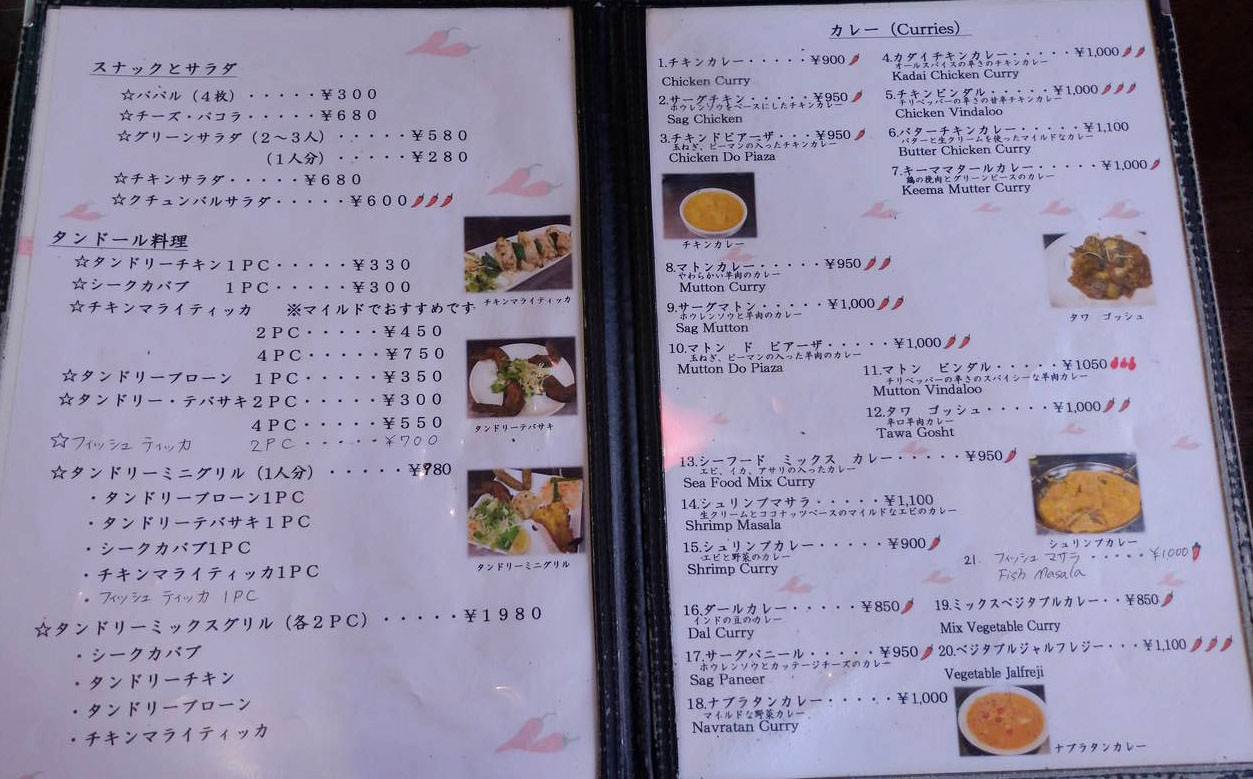 スナックとサラダ
☆パパル（４枚）・・・・・￥３００
☆チーズ・パコラ・・・・・￥６８０
☆グリーンサラダ（２～３人）・・・・・￥５８０
（１人分）・・・・・￥２８０
☆チキンサラダ・・・・・￥６８０
☆クチュンバルサラダ・・・・・￥６００
タンドール料理
☆タンドリーチキン１ＰＣ・・・・・￥３３０
☆シークカバブ　１ＰＣ・・・・・￥３００
☆チキンマライティッカ　※マイルドでおすすめです
２ＰＣ・・・・・￥４５０
４ＰＣ・・・・・￥７５０
☆タンドリープローン　１ＰＣ・・・・・￥３５０
☆タンドリー・テバサキ２ＰＣ・・・・・￥３００
４ＰＣ・・・・・￥５５０
☆フィッシュ ティッカ　2PC・・・・・￥700
☆タンドリーミニグリル（１人分）・・・・・￥980
・タンドリープローン１ＰＣ
・タンドリーテバサキ１ＰＣ
・シークカバブ１ＰＣ
・チキンマライティッカ１ＰＣ
・フィッシュ ティッカ 1PC
☆タンドリーミックスグリル（各２ＰＣ）・・・・・￥１９８０
・シークカバブ
・タンドリーチキン
・タンドリープローン
・チキンマライティッカ
チキンマライティッカ
タンドリーテバサキ
タンドリーミニグリル
カレー（Curries）
1.チキンカレー・・・・・￥900
Chicken Curry
2.サーグチキン・・・・・￥950
ホウレンソウをベースにしたチキンカレー
Sag Chicken
3.チキンドピアーザ・・・￥950
玉ねぎ、ピーマンの入ったチキンカレー
Chicken Do Piaza
チキンカレー
4.カダイチキンカレー・・・・・￥1,000
オールスパイスの辛さのチキンカレー
Kadai Chicken Curry
5.チキンビンダル・・・・・￥1,000
チリペッパーの辛さの甘辛チキンカレー
Chicken Vindaloo
6.バターチキンカレー・・・・・￥1,100
バターと生クリームを使ったマイルドなカレー
Butter Chicken Curry
7.キーママタールカレー・・・・・￥1,000
鶏の挽肉とグリーンピースのカレー
Keema Mutter Curry
8.マトンカレー・・・・・￥950
やわらかい羊肉のカレー
Mutton Curry
9.サーグマトン・・・・・￥1,000
ホウレンソウと羊肉のカレー
Sag Mutton
タワ　ゴッシュ
10.マトン　ド　ピアーザ・・・・・￥1,000
玉ねぎ、ピーマンの入った羊肉のカレー
Mutton Do Piaza
11.マトン　ビンダル・・・・・￥1050
チリペッパーの辛さのスパイシーな羊肉カレー
Mutton Vindaloo
12.タワ　ゴッシュ・・・・・￥1,000
辛口羊肉カレー
Tawa Gosht
13.シーフード　ミックス　カレー・・・・・￥950
エビ、イカ、アサリの入ったカレー
Sea Food Mix Curry
14.シュリンプマサラ・・・・・￥1,100
生クリームとココナッツベースのマイルドなエビのカレー
Shrimp Masala
15.シュリンプカレー・・・・・￥900
エビと野菜のカレー
Shrimp Curry
シュリンプカレー
21. フィッシュ マサラ・・・・・￥1000
Fish Masala
16.ダールカレー・・・・・￥850
インドの豆のカレー
Dal Curry
17.サーグパニール・・・・・￥950
ホウレンソウとカッテージチーズのカレー
Sag Paneer
18.ナブラタンカレー・・・・・￥1,000
マイルドな野菜カレー
Navratan Curry
19.ミックスベジタブルカレー・・￥850
Mix Vegetable Curry
20.ベジタブルジャルフレジー・・・￥1,100
Vegetable Jalfreji
ナブラタンカレー